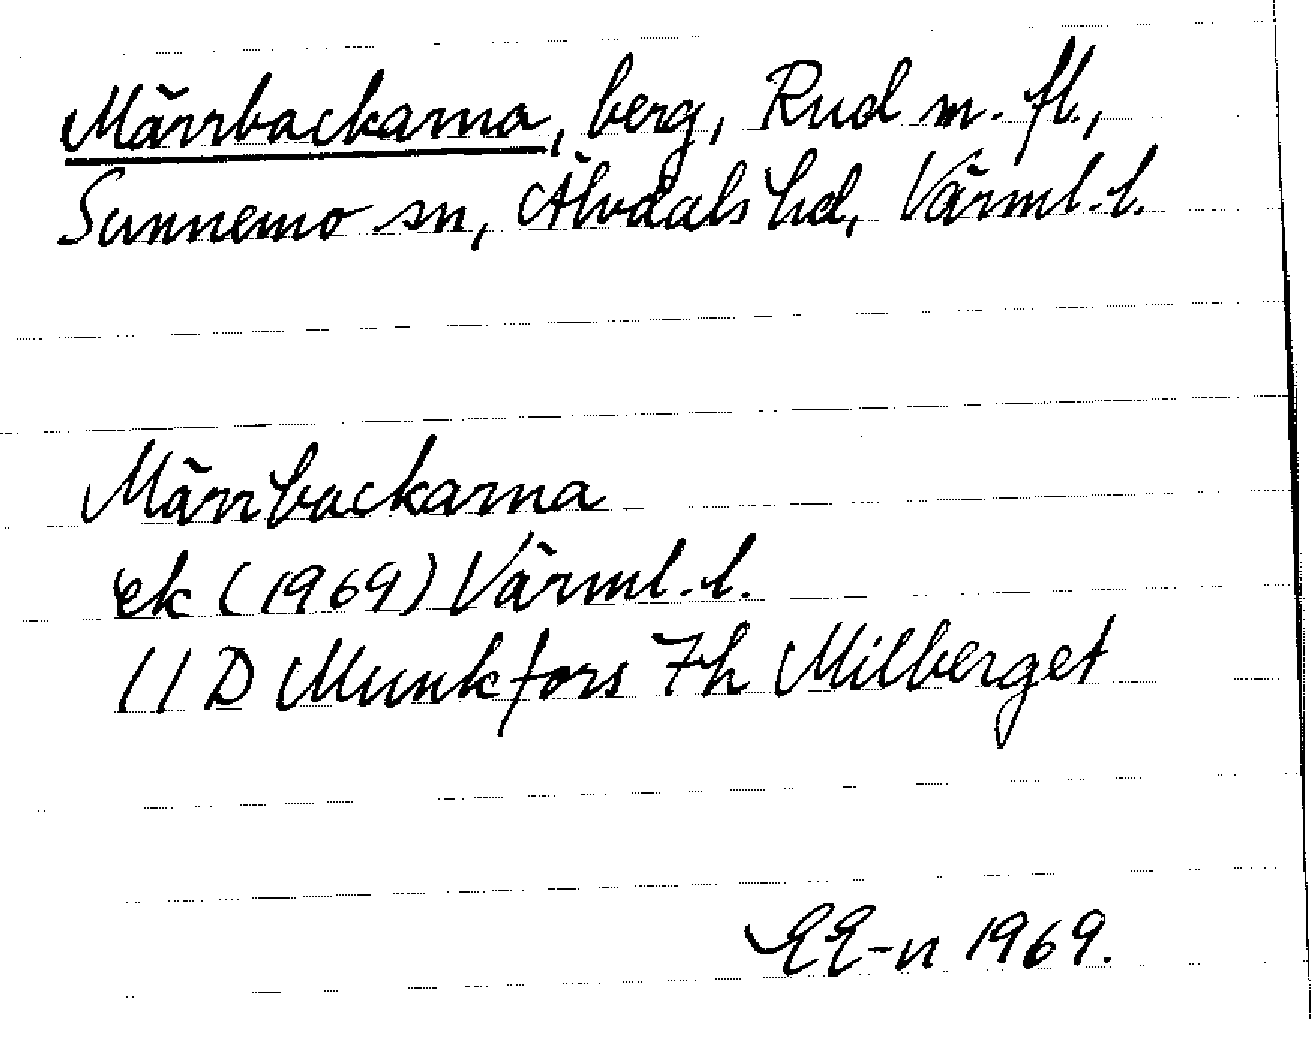 Märrbackarna, berg, Rud m. fl.,
Sunnemo sn, Älvdals hd, Värml. l.
Märrbackarna
ek (1969) Värml. l.
11 D Munkfors 7h Milberget
EE-n 1969.